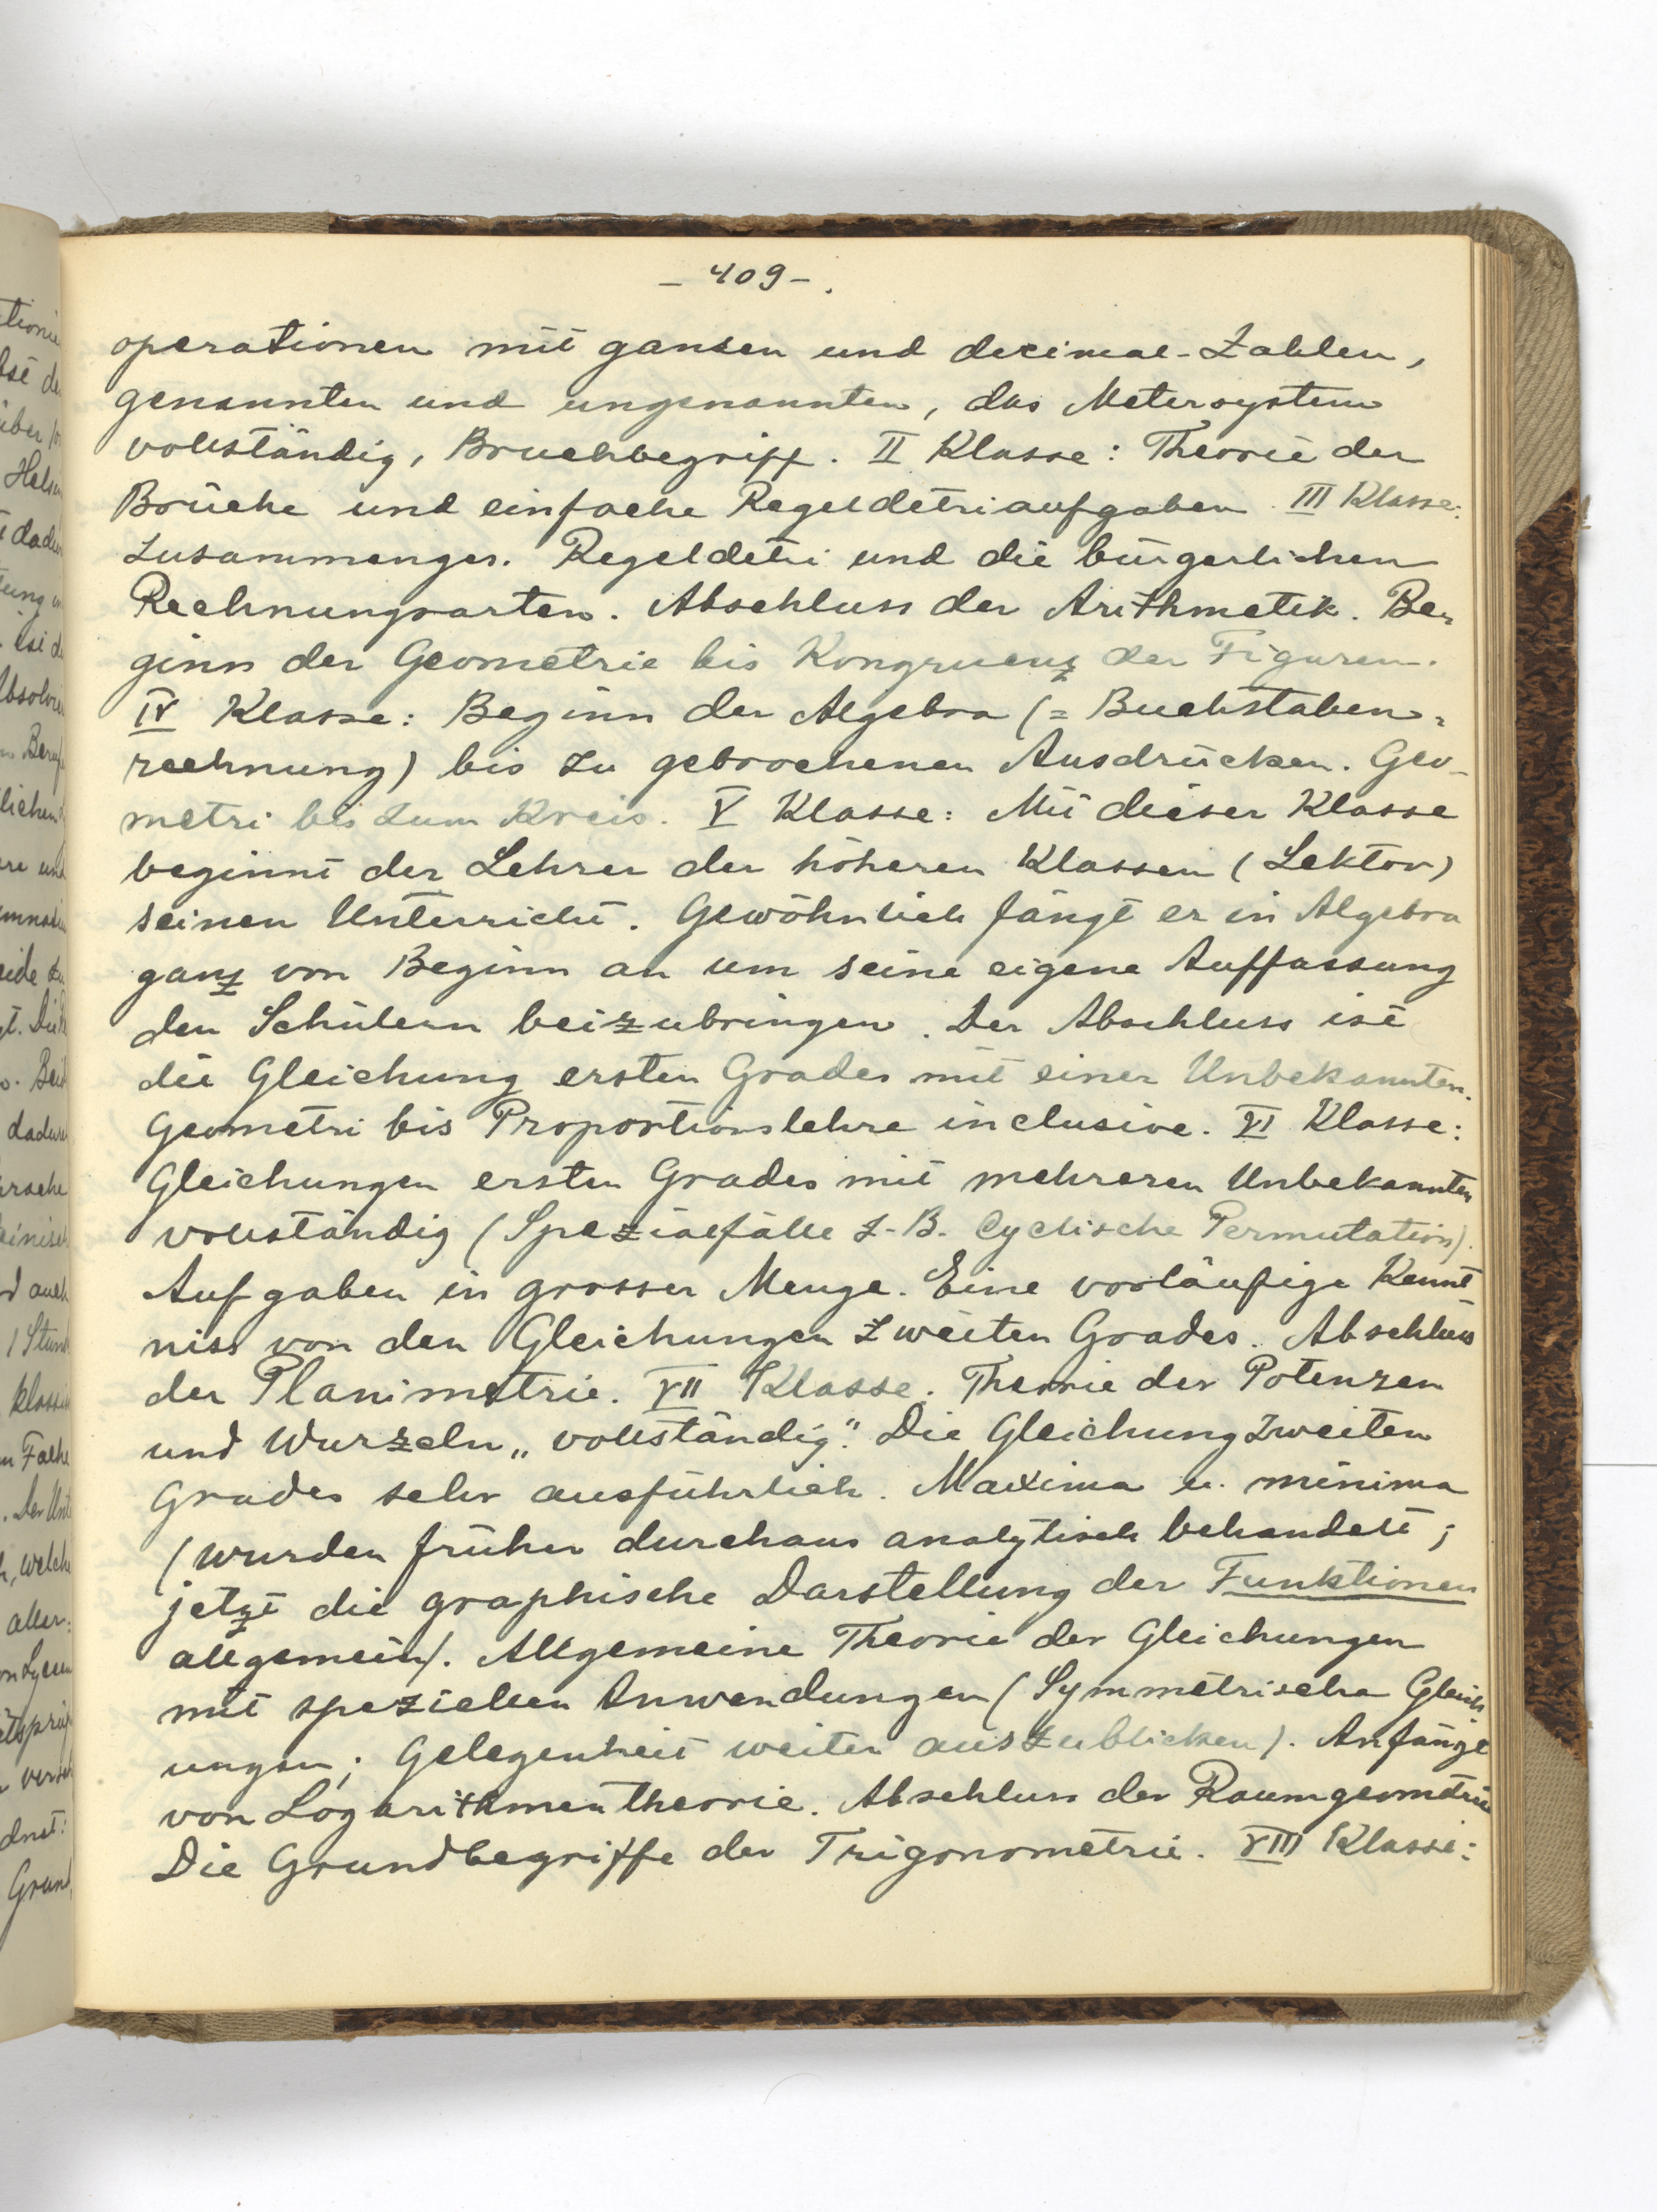 - 409 -.
operationen mit ganzen und decimal-Zahlen,
genannten und ungenannten, das Metersystem
vollständig, Bruchbegriff. II Klasse: Theorie der
Brüche und einfache Regeldetriaufgaben. III Klasse:
Zusammenges. Regeldetri und die bürgerlichen
Rechnungsarten. Abschluss der Arithmetik. Be-
ginn der Geometrie bis Kongruenz der Figuren.
IV Klasse: Beginn der Algebra (= Buchstaben-
rechnung) bis zu gebrochenen Ausdrücken. Geo-
metri bis zum Kreis. V Klasse: Mit dieser Klasse
beginnt der Lehrer der höheren Klassen (Lektor)
seinen Unterricht. Gewöhnlich fängt er in Algebra
ganz von Beginn an um seine eigene Auffassung
den Schülern beizubringen. Der Abschluss ist
die Gleichung ersten Grades mit einer Unbekannten.
Geometri bis Proportionslehre inclusive. VI Klasse:
Gleichungen ersten Grades mit mehreren Unbekannten
vollständig (Spezialfälle z.B. Cyclische Permutation).
Aufgaben in grosser Menge. Eine vorläufige Kennt
niss von den Gleichungen zweiten Grades. Abschluss
der Planimetrie. VII Klasse. Theorie der Potenzen
und Wurzeln „vollständig". Die Gleichung zweiten
Grades sehr ausführlich. Maxima u. minima
(wurden früher durchaus analytisch behandelt;
jetzt die graphische Darstellung der Funktionen
allgemein). Allgemeine Theorie der Gleichungen
mit speziellen Anwendungen (Symmetrische Gleich-
ungen; Gelegenheit weiter auszublicken). Anfänge
von Logarithmentheorie. Abschluss der Raumgeometrie
Die Grundbegriffe der Trigonometrie. VIII Klasse: